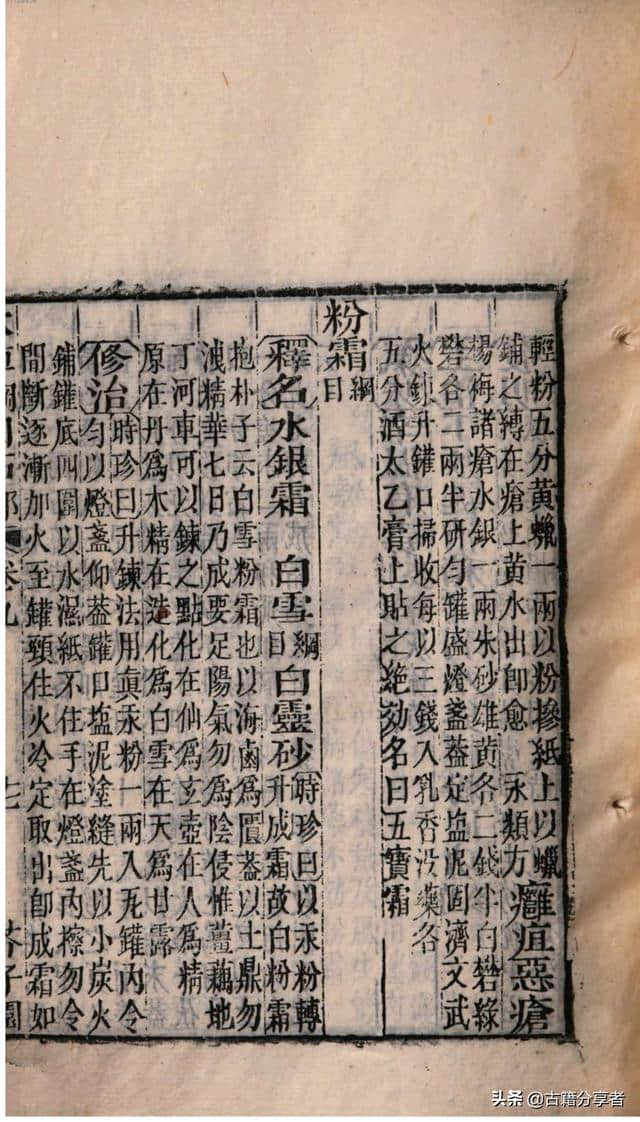 輕粉五分黃蠟一兩以粉摻紙上以蠟
鋪之縛在瘡上黃水出卽愈 永類方 癰疽惡瘡
楊梅諸瘡水銀一兩朱砂雄黃各二錢半白礬綠
礬各二兩半研勻罐盛燈盞葢定塩泥固濟文武
火鍊升罐口掃收每以三錢入乳香沒藥各
五分洒太乙膏上貼之絕効名曰五寶霜
粉霜綱目
釋名水銀霜 白雪綱目白靈砂時珍曰以汞粉轉
升成霜故白粉霜
抱朴子云白雪粉霜也以海鹵爲匱葢以土鼎勿
洩精華七日乃成要足陽氣勿爲陰侵惟薑藕地
丁河車可以鍊之點化在仙爲玄壺在人爲精
原在丹爲木精在造化爲白雪在天爲甘露
修治時珍曰升鍊法用真汞粉一兩入瓦罐內令
勻以燈盞仰葢罐口塩泥塗縫先以小炭火
鋪罐底四圍以水濕紙不住手在燈盞內擦勿令
間斷逐漸加火至罐頸住火冷定取出卽成霜如
卷九
芥子園
头条 @古籍分享者